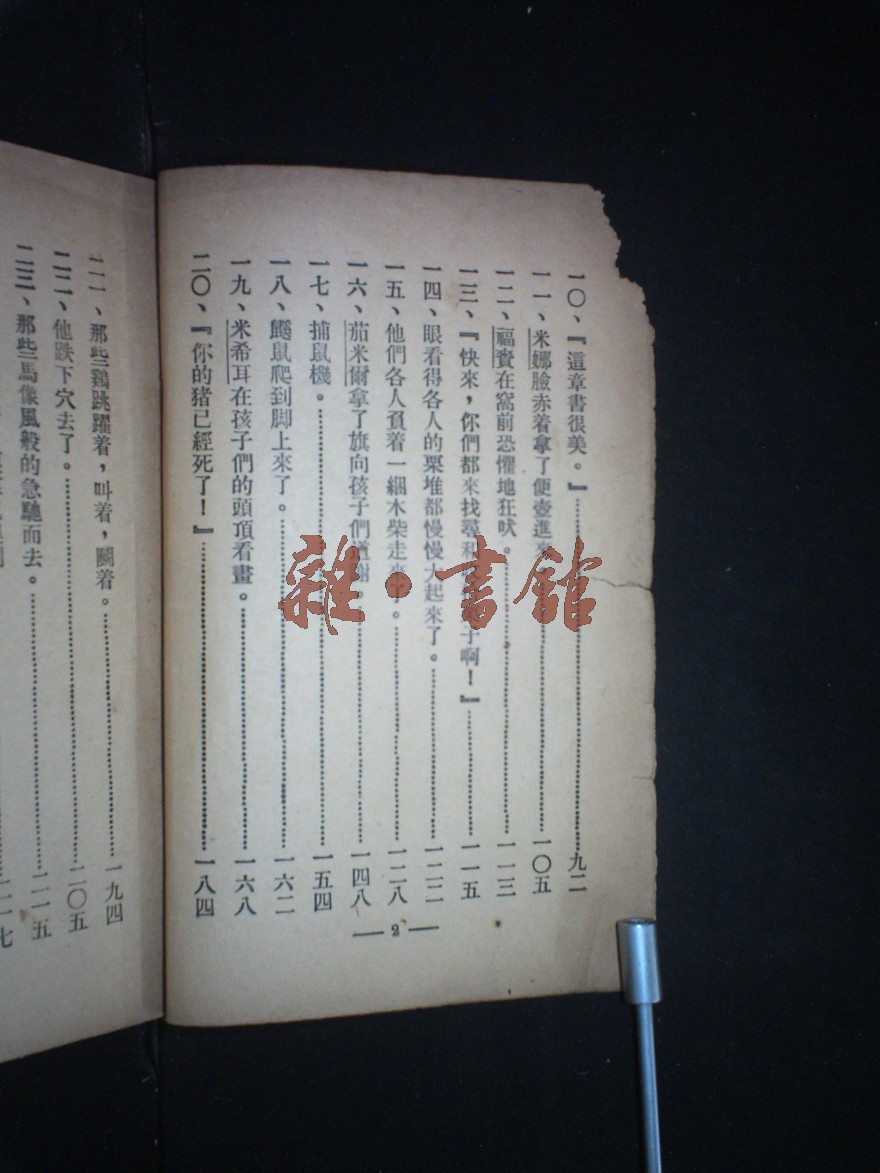 一〇、『這章書很美。』⋯⋯九二
一一、米娜臉赤着拿了便壺進來⋯⋯一〇五
一二、福賚在窩前恐懼地狂吠。⋯⋯一一三
一三、『快來，你們都來找尋 子啊！』⋯⋯一一五
一四、眼看得各人的栗堆都慢慢大起來了。⋯⋯一二二
一五、他們各人負着一綑木柴走來了。⋯⋯一二八
一六、茄米爾拿了旗向孩子們道謝。⋯⋯一四八
一七、捕鼠機。⋯⋯一五四
一八、鼴鼠爬到脚上來了。⋯⋯一六二
一九、米希耳在孩子們的頭頂看畫。⋯⋯一六八
二〇、『你的猪已經死了！』⋯⋯一八四
— 2 —
二一、那些鷄跳躍着，叫着，鬭着。⋯⋯一九四
二二、他跌下穴去了。⋯⋯二〇五
二三、那些馬像風般的急馳而去。⋯⋯二一五
二一七
雜·書館